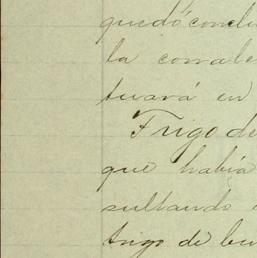 quedó conclu
la corrale
tuará en
Trigo de
que había
sultando
trigo de bu